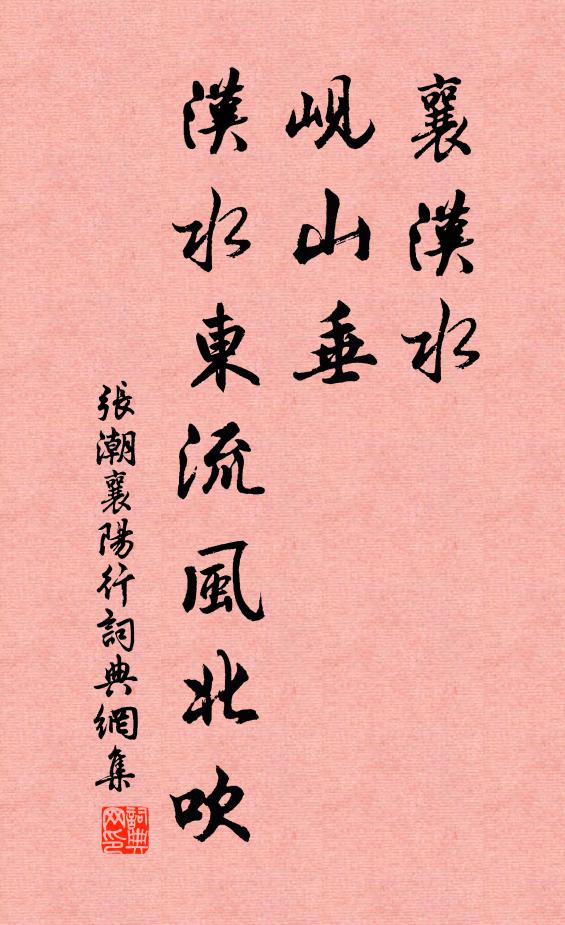 襄漢水
峴山垂
漢水東流風北吹
張潮襄陽行詞典網集
詞典网印